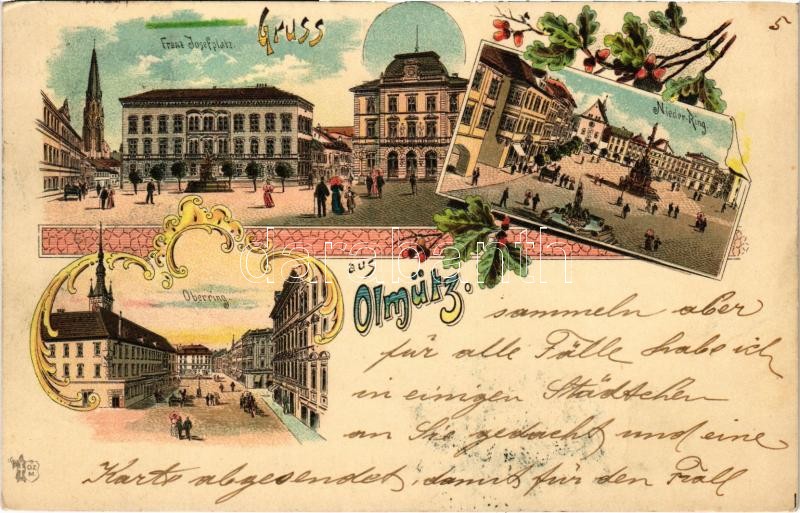 5
Gruss
Franz Josefplatz.
Nieder-Ring
aus
Olmütz.
Oberring
darabanth
sammeln aber
für alle Fälle habe ich
in einigen Städtchen
an Sie gedacht und eine
Karte abgesendet, damit für den Fall